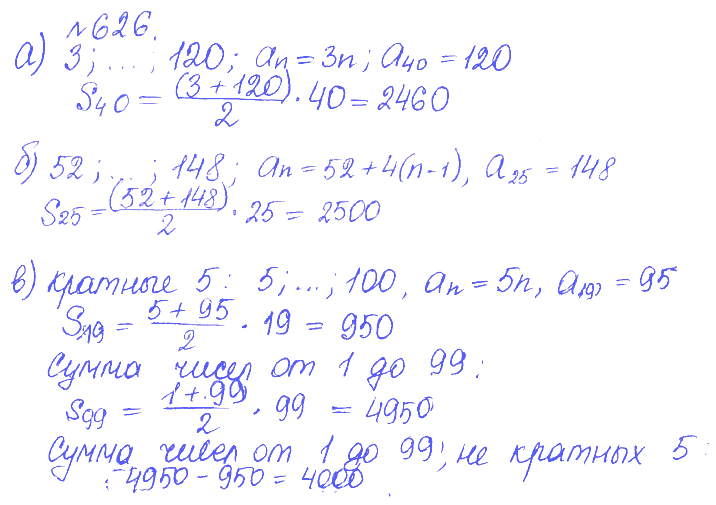 №626.
а) 3; ... ; 120; an = 3n; a40 = 120
S40 = (3 + 120)/2 · 40 = 2460
б) 52; ... ; 148; an = 52 + 4(n-1), a25 = 148
S25 = (52 + 148)/2 · 25 = 2500
в) кратные 5: 5; ... ; 100, an = 5n, a19 = 95
S19 = 5 + 95/2 · 19 = 950
Сумма чисел от 1 до 99:
S99 = 1 + 99/2 · 99 = 4950
Сумма чисел от 1 до 99, не кратных 5:
4950 - 950 = 4000